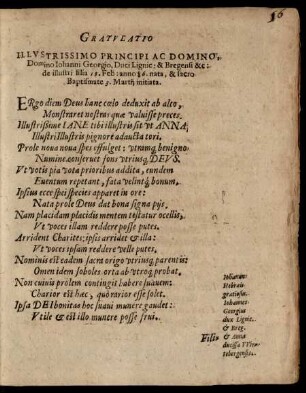 16
GRATVLATIO
ILLVSTRISSIMO PRINCIPI AC DOMINO,
Domino Iohanni Georgio, Duci Lignic: & Bregensi &c:
de illustri filia 15. Feb: anno 86. nata, & sacro
Baptismate 5. Martij initiata.
ERgo diem Deus hanc cœlo deduxit ab alto,
Monstraret nostras quæ valuisse preces.
Illustrissime IANE tibi illustris sit vt ANNA,
Illustri Illustris pignore adaucta tori.
Prole noua noua spes effulget: vtramq́ benigno
Numine conseruet fons vtriusq́, DEVS.
Vt votis pia vota prioribus addita, eundem
Euentum repetant, fata velintq́ bonum.
Ipsius ecce spei species apparet in ore:
Nata prole Deus dat bona signa pijs.
Nam placidam placidis mentem testatur ocellis,
Vt voces illam reddere posse putes.
Arrident Charites; ipsis arridet & illa:
Vt voces ipsam reddere velle putes.
Nominis est eadem sacra origo vtriusq́ parentis:
Omen idem soboles orta ab vtroq́ probat.
Non cuiuis prolem contingit habere suauem:
Charior est hæc, quo rarior esse solet.
Ipsa DEI bonitas hoc suaui munere gaudet:
Vtile & est illo munere posse frui.
Iohannes
Hebraicè
gratiosus.
Iohannes
Georgius
dux Lignic.
& Breg.
& Anna
ducissa Wirtebergensis.
Filia